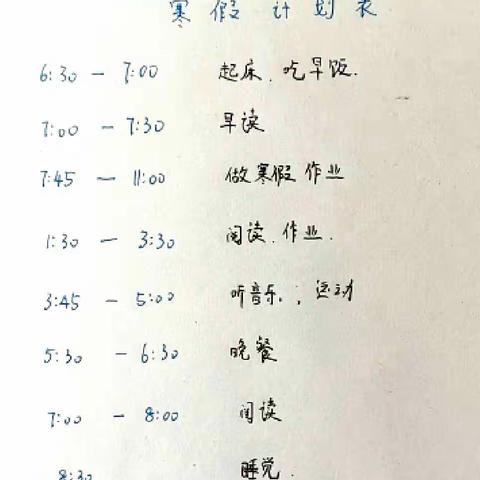 寒假计划表
6:30 — 7:00 起床、吃早饭.
7:00 — 7:30 早读
7:45 — 11:00 做寒假作业
1:30 — 3:30 阅读.作业.
3:45 — 5:00 听音乐.;运动
5:30 — 6:30 晚餐
7:00 — 8:00 阅读
8:30 睡觉.